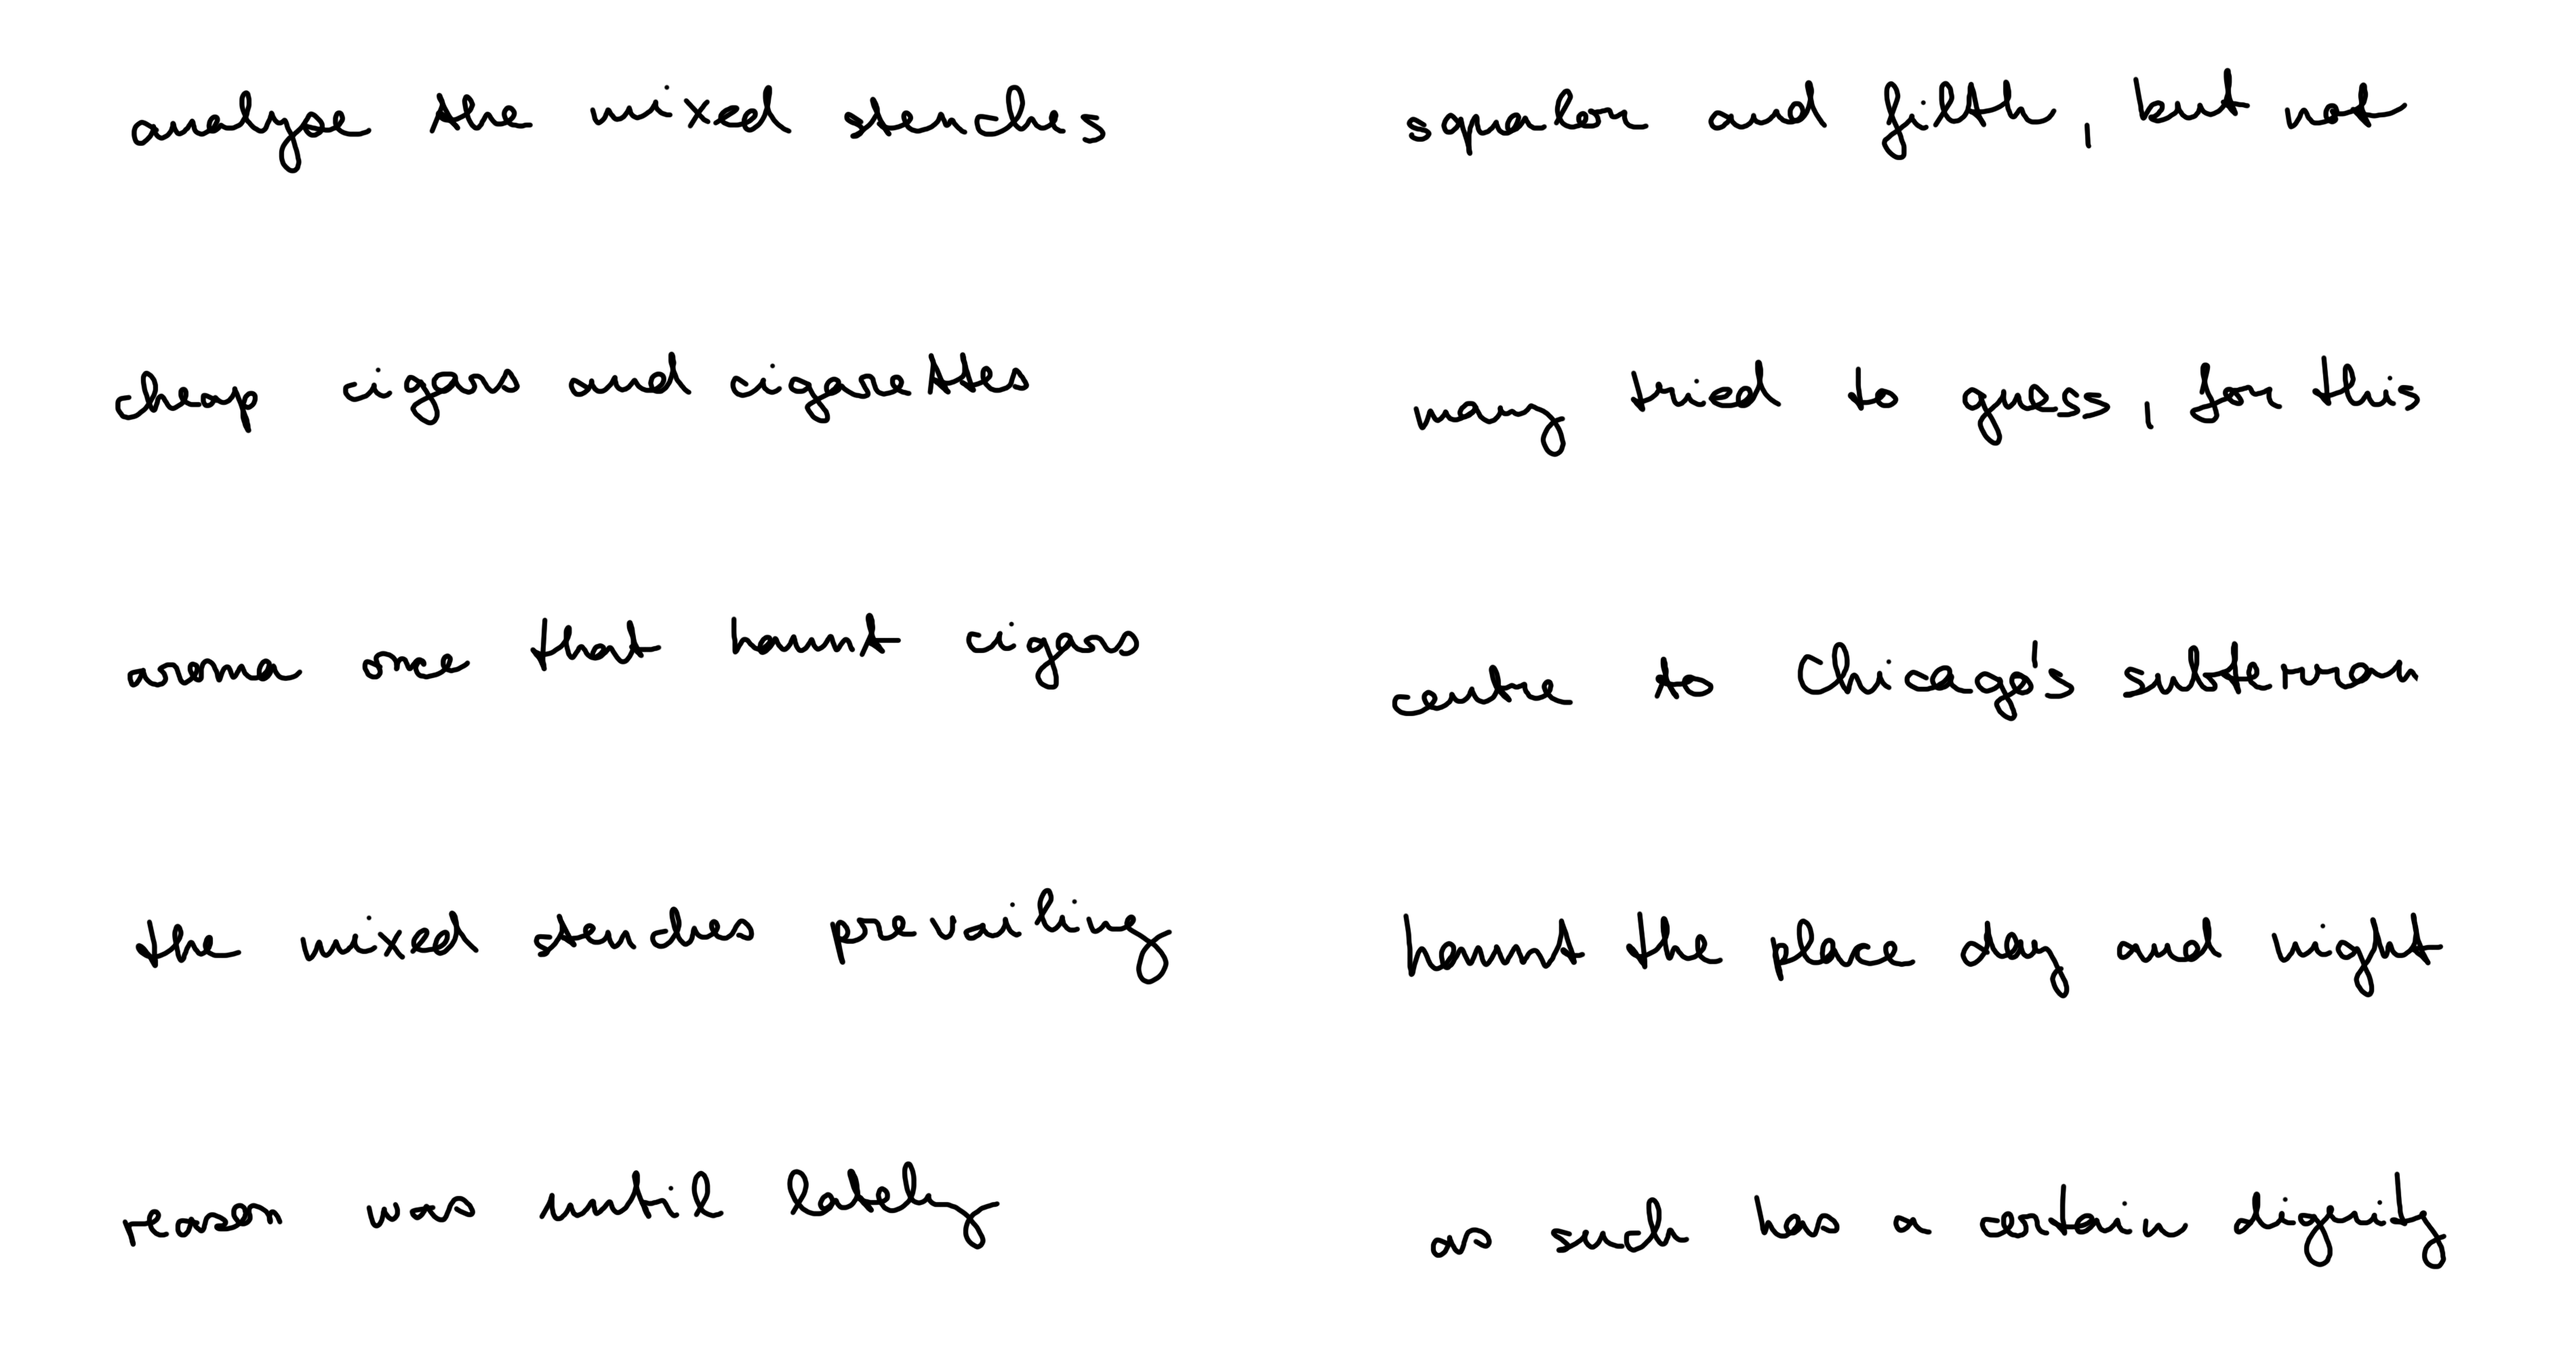 analyse the mixed stenches
cheap cigars and cigarettes
aroma once that haunt cigars
the mixed stenches prevailing
reason was until lately
squalor and filth, but not
many tried to guess, for this
centre to Chicago's subterran
haunt the place day and night
as such has a certain dignity